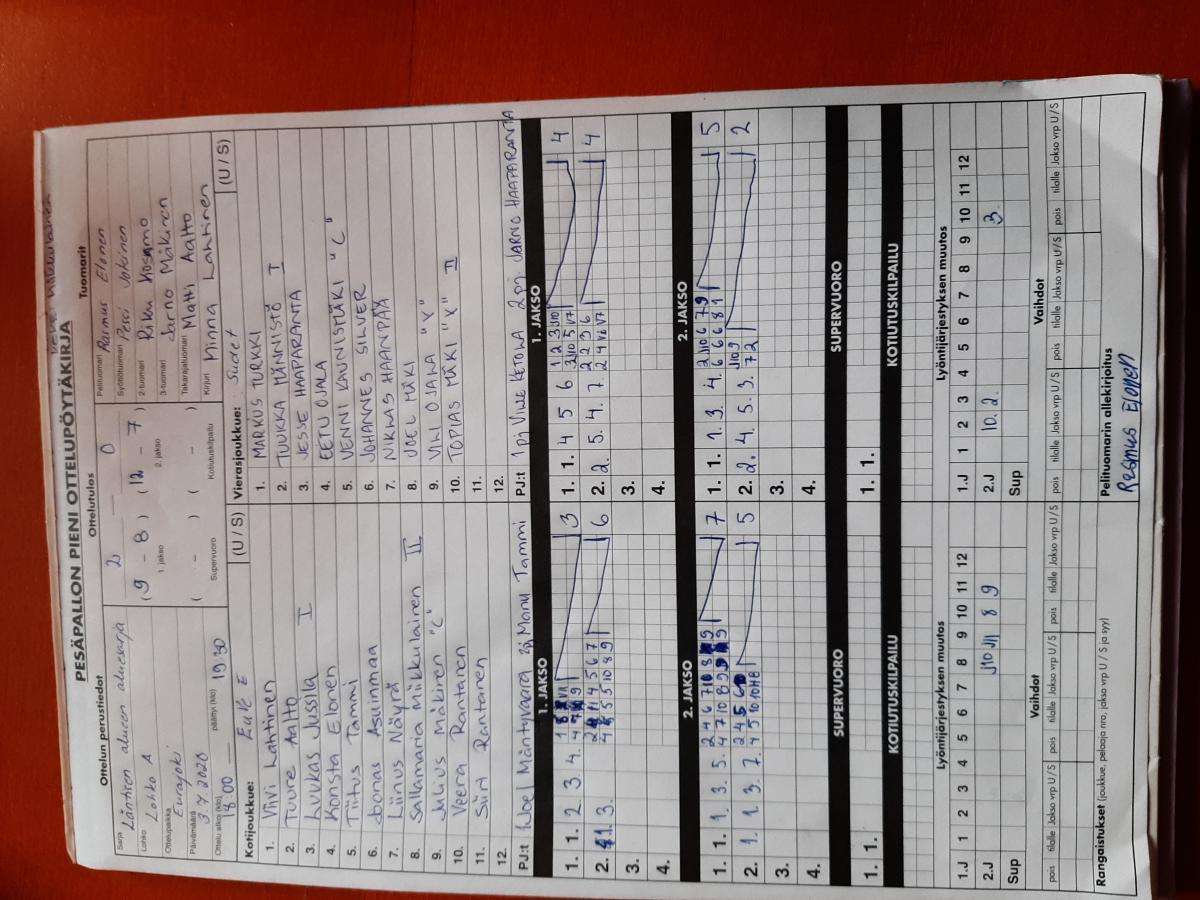 PESÄPALLON PIENI OTTELUPÖYTÄKIRJA
Ottelun perustiedot
Sarja Läntisen alueen aluesarja
Lohko Lohko A
Ottelupaikka Eurajoki
Päivämäärä 3.7.2020
Ottelu alkoi (klo) 18:00 päättyi (klo) 1930
Ottelutulos
2 0
(9 - 8) (12 - 7)
1. jakso 2. jakso
( - ) ( - )
Supervuoro Kotiutuskilpailu
Tuomarit
Pelituomari Rasmus Elonen
Syöttötuomari Petri Jokinen
2-tuomari Riku Kosamo
3-tuomari Jarno Mäkinen
Takarajatuomari Matti Aalto
Kirjuri Minna Lahtinen
Kotijoukkue: EuVe E (U / S)
1. Viivi Lahtinen
2. Tuure Aalto
3. Luukas Jussila I
4. Konsta Elonen
5. Tiitus Tammi
6. Joonas Asuinmaa
7. Liinus Näyrä
8. Sallamaria Miikkulainen II
9. Julius Mäkinen "C"
10. Veera Rantanen
11. Siiri Rantanen
12.
PJ:t 1 Joel Mäntyvaara 2pj Manu Tammi
Vierasjoukkue: Sudet (U / S)
1. MARKUS TURKKI
2. TUUKKA MÄNNISTÖ I
3. JESSE HAAPARANTA
4. EETU OJALA
5. VENNI KAUNISMÄKI "C"
6. JOHANNES SILVER
7. NIKLAS HAANPÄÄ
8. JOEL MÄKI
9. VILI OJAWA "V"
10. TOPIAS MÄKI "K" II
11.
12.
PJ:t 1 pj VILLE KETOLA 2 pj. JARNO HAAPARANTA
1. JAKSO 1. JAKSO
1. 1. 2 3 4. 3
2. 1. 3. 6
3.
4.
1. 1. 4 5 6 4
2. 2. 5. 4. 7. 4
3.
4.
2. JAKSO 2. JAKSO
1. 1. 1. 3. 5. 7
2. 1. 1. 3. 7. 5
3.
4.
1. 1. 1. 3. 4. 5
2. 2. 4. 5. 3. 2
3.
4.
SUPERVUORO SUPERVUORO
1. 1.
1. 1.
KOTIUTUSKILPAILU KOTIUTUSKILPAILU
Lyöntijärjestyksen muutos
1 2 3 4 5 6 7 8 9 10 11 12
1.J
2.J J10 J11 8 9
Sup
Lyöntijärjestyksen muutos
1 2 3 4 5 6 7 8 9 10 11 12
1.J
2.J 10. 2. 3.
Sup
Vaihdot
pois tilalle Jakso vrp U / S pois tilalle Jakso vrp U / S pois tilalle Jakso vrp U / S
Vaihdot
pois tilalle Jakso vrp U / S pois tilalle Jakso vrp U / S pois tilalle Jakso vrp U / S
Rangaistukset (joukkue, pelaaja nro, jakso vrp U / S ja syy)
Pelituomarin allekirjoitus
Rasmus Elonen